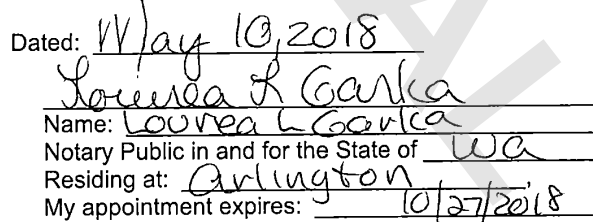 Dated: May 10, 2018
Lourea L Garka
Name: Lourea L Garka
Notary Public in and for the State of Wa
Residing at: Arlington,
My appointment expires: 10/27/2018